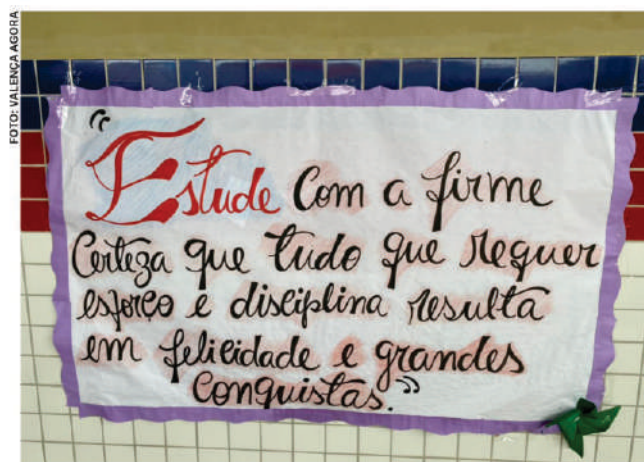 FOTO: VALENÇA AGORA
"Estude Com a firme
Certeza que tudo que requer
esforço e disciplina resulta
em felicidade e grandes
Conquistas."